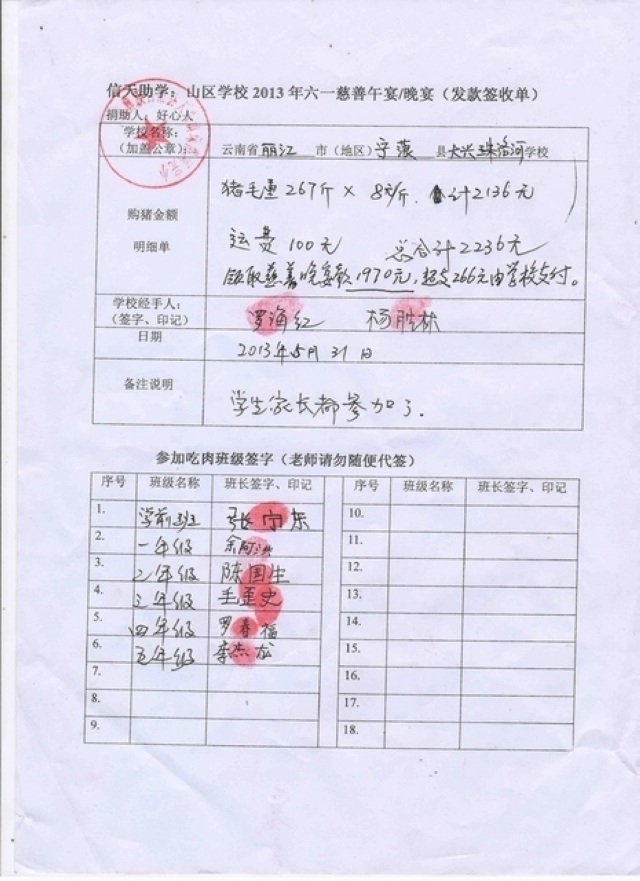 信天助学：山区学校 2013 年六一慈善午宴/晚宴（发款签收单）
捐助人：好心人
学校名称：
（加盖公章）： 云南省 丽江 市（地区）宁蒗 县 大兴 珠洛河 学校
猪毛重 267斤 × 8元/斤. 合计2136元
购猪金额
明细单
运费 100元 总合计2236元
领取慈善晚宴款 1970元, 超支266元由学校支付。
学校经手人：
（签字、印记） 罗海红 杨胜林
日期 2013年5月31日
备注说明 学生家长都参加了.
参加吃肉班级签字（老师请勿随便代签）
序号 班级名称 班长签字、印记 序号 班级名称 班长签字、印记
1. 学前班 张宁东 10.
2. 一年级 余阿洪 11.
3. 2年级 陈国生 12.
4. 三年级 毛歪史 13.
5. 四年级 罗春福 14.
6. 五年级 李杰龙 15.
7. 16.
8. 17.
9. 18.